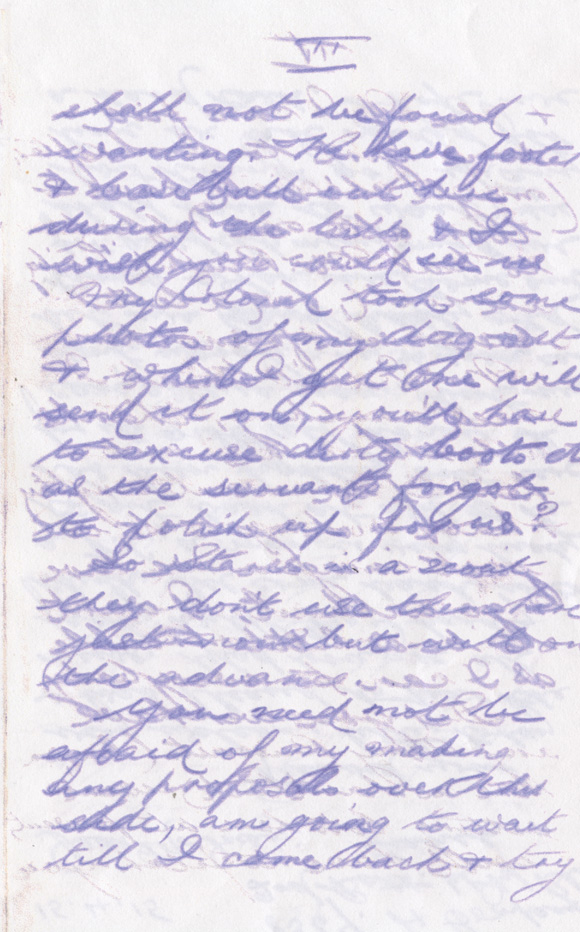 VII
shall not be found
wanting. We have footer
& baseball out here
during the    & I
wish you could see us
The Colonel took some
photos of my dug out
& when I get one will
send it on, you will have
to excuse dirty boots etc
as the servants forgot
to polish up for us?
So Stan is a scout
they don't use them here
just now but will on
the advance.
You need not be
afraid of my making
any proposals over this
side, am going to wait
till I come back & try